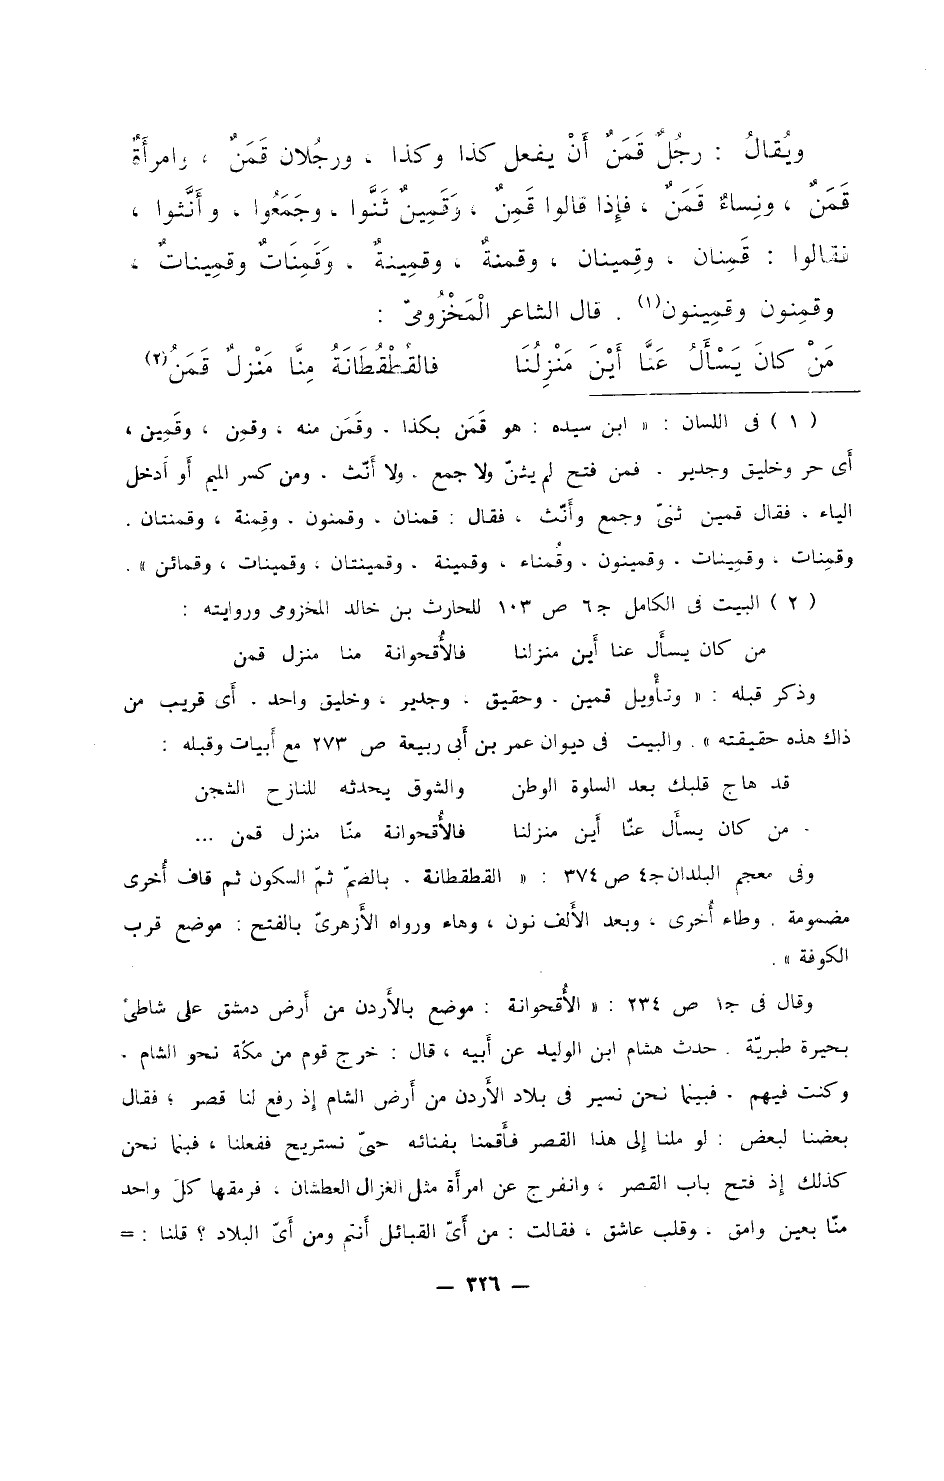 ويُقالُ : رجُلٌ قَمَنٌ أَنْ يفعل كذا وكذا ، ورجُلان قَمَنٌ ، وامرأَةٌ
قَمَنٌ ، ونِساءٌ قَمَنٌ ، فإِذا قالوا قَمِنٌ ، وَقَمِينٌ ثَنَّوا ، وجَمَعُوا ، وأَنَّثوا ،
فقالوا : قَمِنان ، وقمِينان ، وقمنةٌ ، وقمِينةٌ ، وَقَمِنَاتٌ وقمِيناتٌ ،
وقمِنون وقمِينون(١) . قال الشاعر الْمَخْزُومىّ :
مَنْ كانَ يَسْأَلُ عَنَّا أَيْنَ مَنْزِلُنَا فالقُطْقُطَانَةُ مِنَّا مَنْزِلٌ قَمَنُ(٢)
( ١ ) فى اللسان : « ابن سيده : هو قَمَن بكذا . وقَمَن منه ، وقمِن ، وقَمِين ،
أى حر وخليق وجدير . فمن فتح لم يثنّ ولا جمع . ولا أَنّث . ومن كسر الميم أو أَدخل
الياء . فقال قمين ثنىّ وجمع وأَنّث ، فقال : قمنان . وقمنون . وقِمنة ، وقمنتان .
وقمِنات ، وقمِينات . وقمينون . وقُمناء ، وقمينة . وقمينتان ، وقمينات ، وقمائن » .
( ٢ ) البيت فى الكامل ج٦ ص ١٠٣ للحارث بن خالد المخزومى وروايته :
من كان يسأَل عنا أَين منزلنا فالأُقحوانة منا منزل قمن
وذكر قبله : « وتأْويل قمين . وحقيق . وجدير ، وخليق واحد . أَى قريب من
ذاك هذه حقيقته » . والبيت فى ديوان عمر بن أَبى ربيعة ص ٢٧٣ مع أَبيات وقبله :
قد هاج قلبك بعد السلوة الوطن والشوق يحدثه للنازح الشجن
. من كان يسأَل عنّا أَين منزلنا فالأُقحوانة منّا منزل قمن ...
وفى معجم البلدان ج٤ ص ٣٧٤ : « القطقطانة . بالضمّ ثمّ السكون ثم قاف أُخرى
مضمومة . وطاء أُخرى ، وبعد الأَلف نون ، وهاء ورواه الأَزهرىّ بالفتح : موضع قرب
الكوفة » .
وقال فى ج١ ص ٢٣٤ : « الأُقحوانة : موضع بالأَردن من أَرض دمشق على شاطئ
بحيرة طبريّة . حدث هشام ابن الوليد عن أَبيه ، قال : خرج قوم من مكّة نحو الشام .
وكنت فيهم . فبينما نحن نسير فى بلاد الأَردن من أَرض الشام إِذ رفع لنا قصر ؛ فقال
بعضنا لبعض : لو ملنا إِلى هذا القصر فأَقمنا بفنائه حتىّ نستريح ففعلنا ، فبينما نحن
كذلك إِذ فتح باب القصر ، وانفرج عن امرأَة مثل الغزال العطشان ، فرمقها كلّ واحد
منّا بعين وامق . وقلب عاشق ، فقالت : من أَىّ القبائل أَنتم ومن أَىّ البلاد ؟ قلنا : =
— ٣٢٦ —